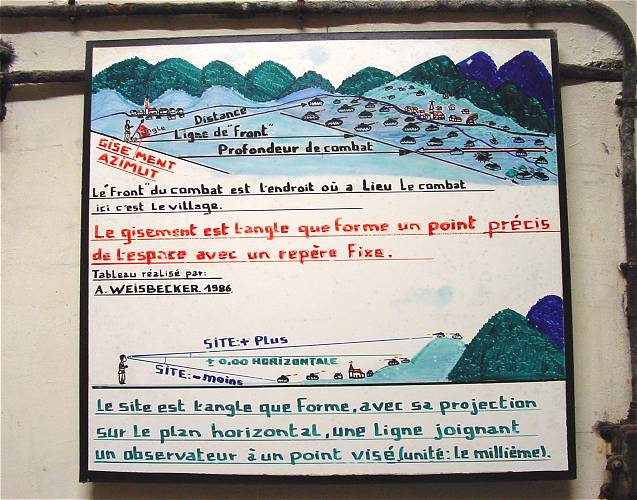 Distance
angle
Ligne de "Front"
Profondeur de combat
GISEMENT
AZIMUT
Le "Front" du combat est l'endroit où a Lieu Le combat
ici c'est Le village.
Le gisement est l'angle que forme un point précis
de l'espace avec un repère fixe.
Tableau réalisé par:
A. WEISBECKER. 1986.
SITE:+ PLUS
± 0.00 HORIZONTALE
SITE:- moins
Le site est l'angle que Forme, avec sa projection
sur Le plan horizontal, une Ligne joignant
un observateur à un point visé (unité: Le millième).